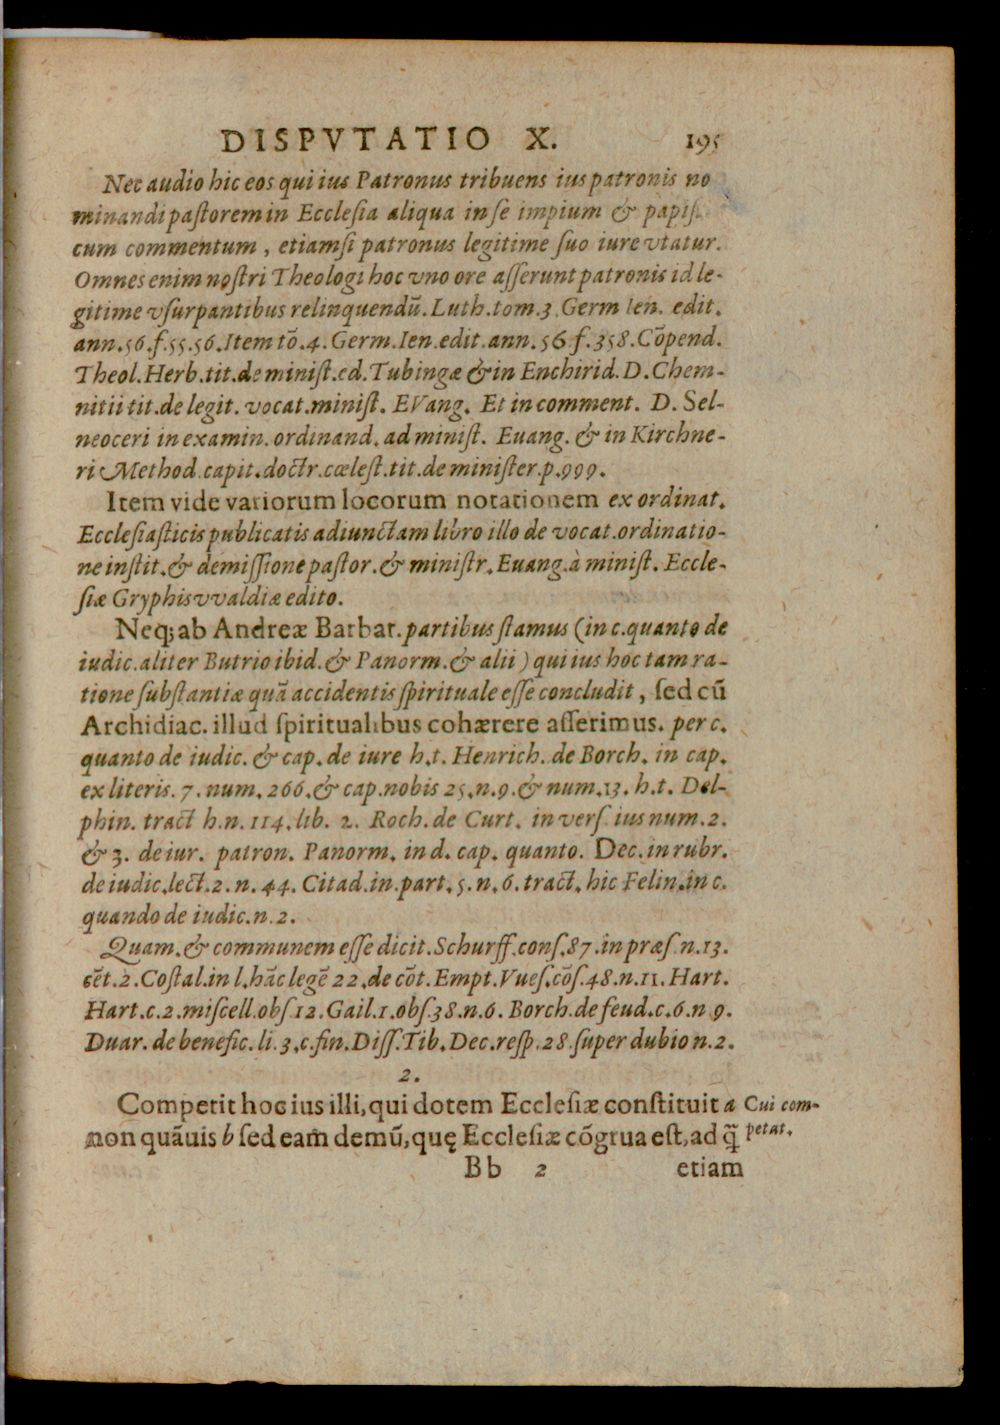 DISPVTATIO X. 195
Nec audio hic eos qui ius Patronus tribuens ius patronis no
minandi pastorem in Ecclesia aliqua in se impium & papis
cum commentum, etiamsi patronus legitime suo iure vtatur.
Omnes enim nostri Theologi hoc vno ore asserunt patronis id le-
gitime vsurpantibus relinquendū. Luth. tom. 3. Germ Ien. edit.
ann. 56. f. 55. 56. Item tō. 4. Germ. Ien. edit. ann. 56. f. 358. Cōpend.
Theol. Herb. tit. de minist. ed. Tubingæ & in Enchirid. D. Chem-
nitii tit. de legit. vocat. minist. EVang. Et in comment. D. Sel-
neoceri in examin. ordinand. ad minist. Euang. & in Kirchne-
ri Method. capit. doctr. cœlest. tit. de minister. p. 999.
Item vide variorum locorum notationem ex ordinat.
Ecclesiasticis publicatis adiunctam libro illo de vocat. ordinatio-
ne instit. & demissione pastor. & ministr. Euang. à minist. Eccle-
siæ Gryphisvvaldiæ edito.
Neq; ab Andreæ Barbat. partibus stamus (in c. quanto de
iudic. aliter Butrio ibid. & Panorm. & alii) qui ius hoc tam ra-
tione substantiæ quā accidentis spirituale esse concludit, sed cū
Archidiac. illud spiritualibus cohærere asserimus. per c.
quanto de iudic. & cap. de iure h. t. Henrich. de Borch. in cap.
ex literis. 7. num. 266. & cap. nobis 25. n. 9. & num. 13. h. t. Del-
phin. tract h. n. 114. lib. 2. Roch. de Curt. in vers. ius num. 2.
& 3. de iur. patron. Panorm. in d. cap. quanto. Dec. in rubr.
de iudic. lect. 2. n. 44. Citad. in. part. 5. n. 6. tract. hic Felin. in c.
quando de iudic. n. 2.
Quam. & communem esse dicit. Schurff. cons. 87. in præs. n. 13.
cēt. 2. Costal. in l. hāc legē 22. de cōt. Empt. Vues. cōs. 48. n. 11. Hart.
Hart. c. 2. miscell. obs. 12. Gail. 1. obs. 38. n. 6. Borch. de feud. c. 6. n 9.
Duar. de benefic. li. 3. c. fin. Diss. Tib. Dec. resp. 28. super dubio n. 2.
2.
Competit hoc ius illi, qui dotem Ecclesiæ constituit a Cui com-
non quāuis b sed eam demū, quę Ecclesiæ cōgrua est, ad q̄ petat.
Bb 2 etiam